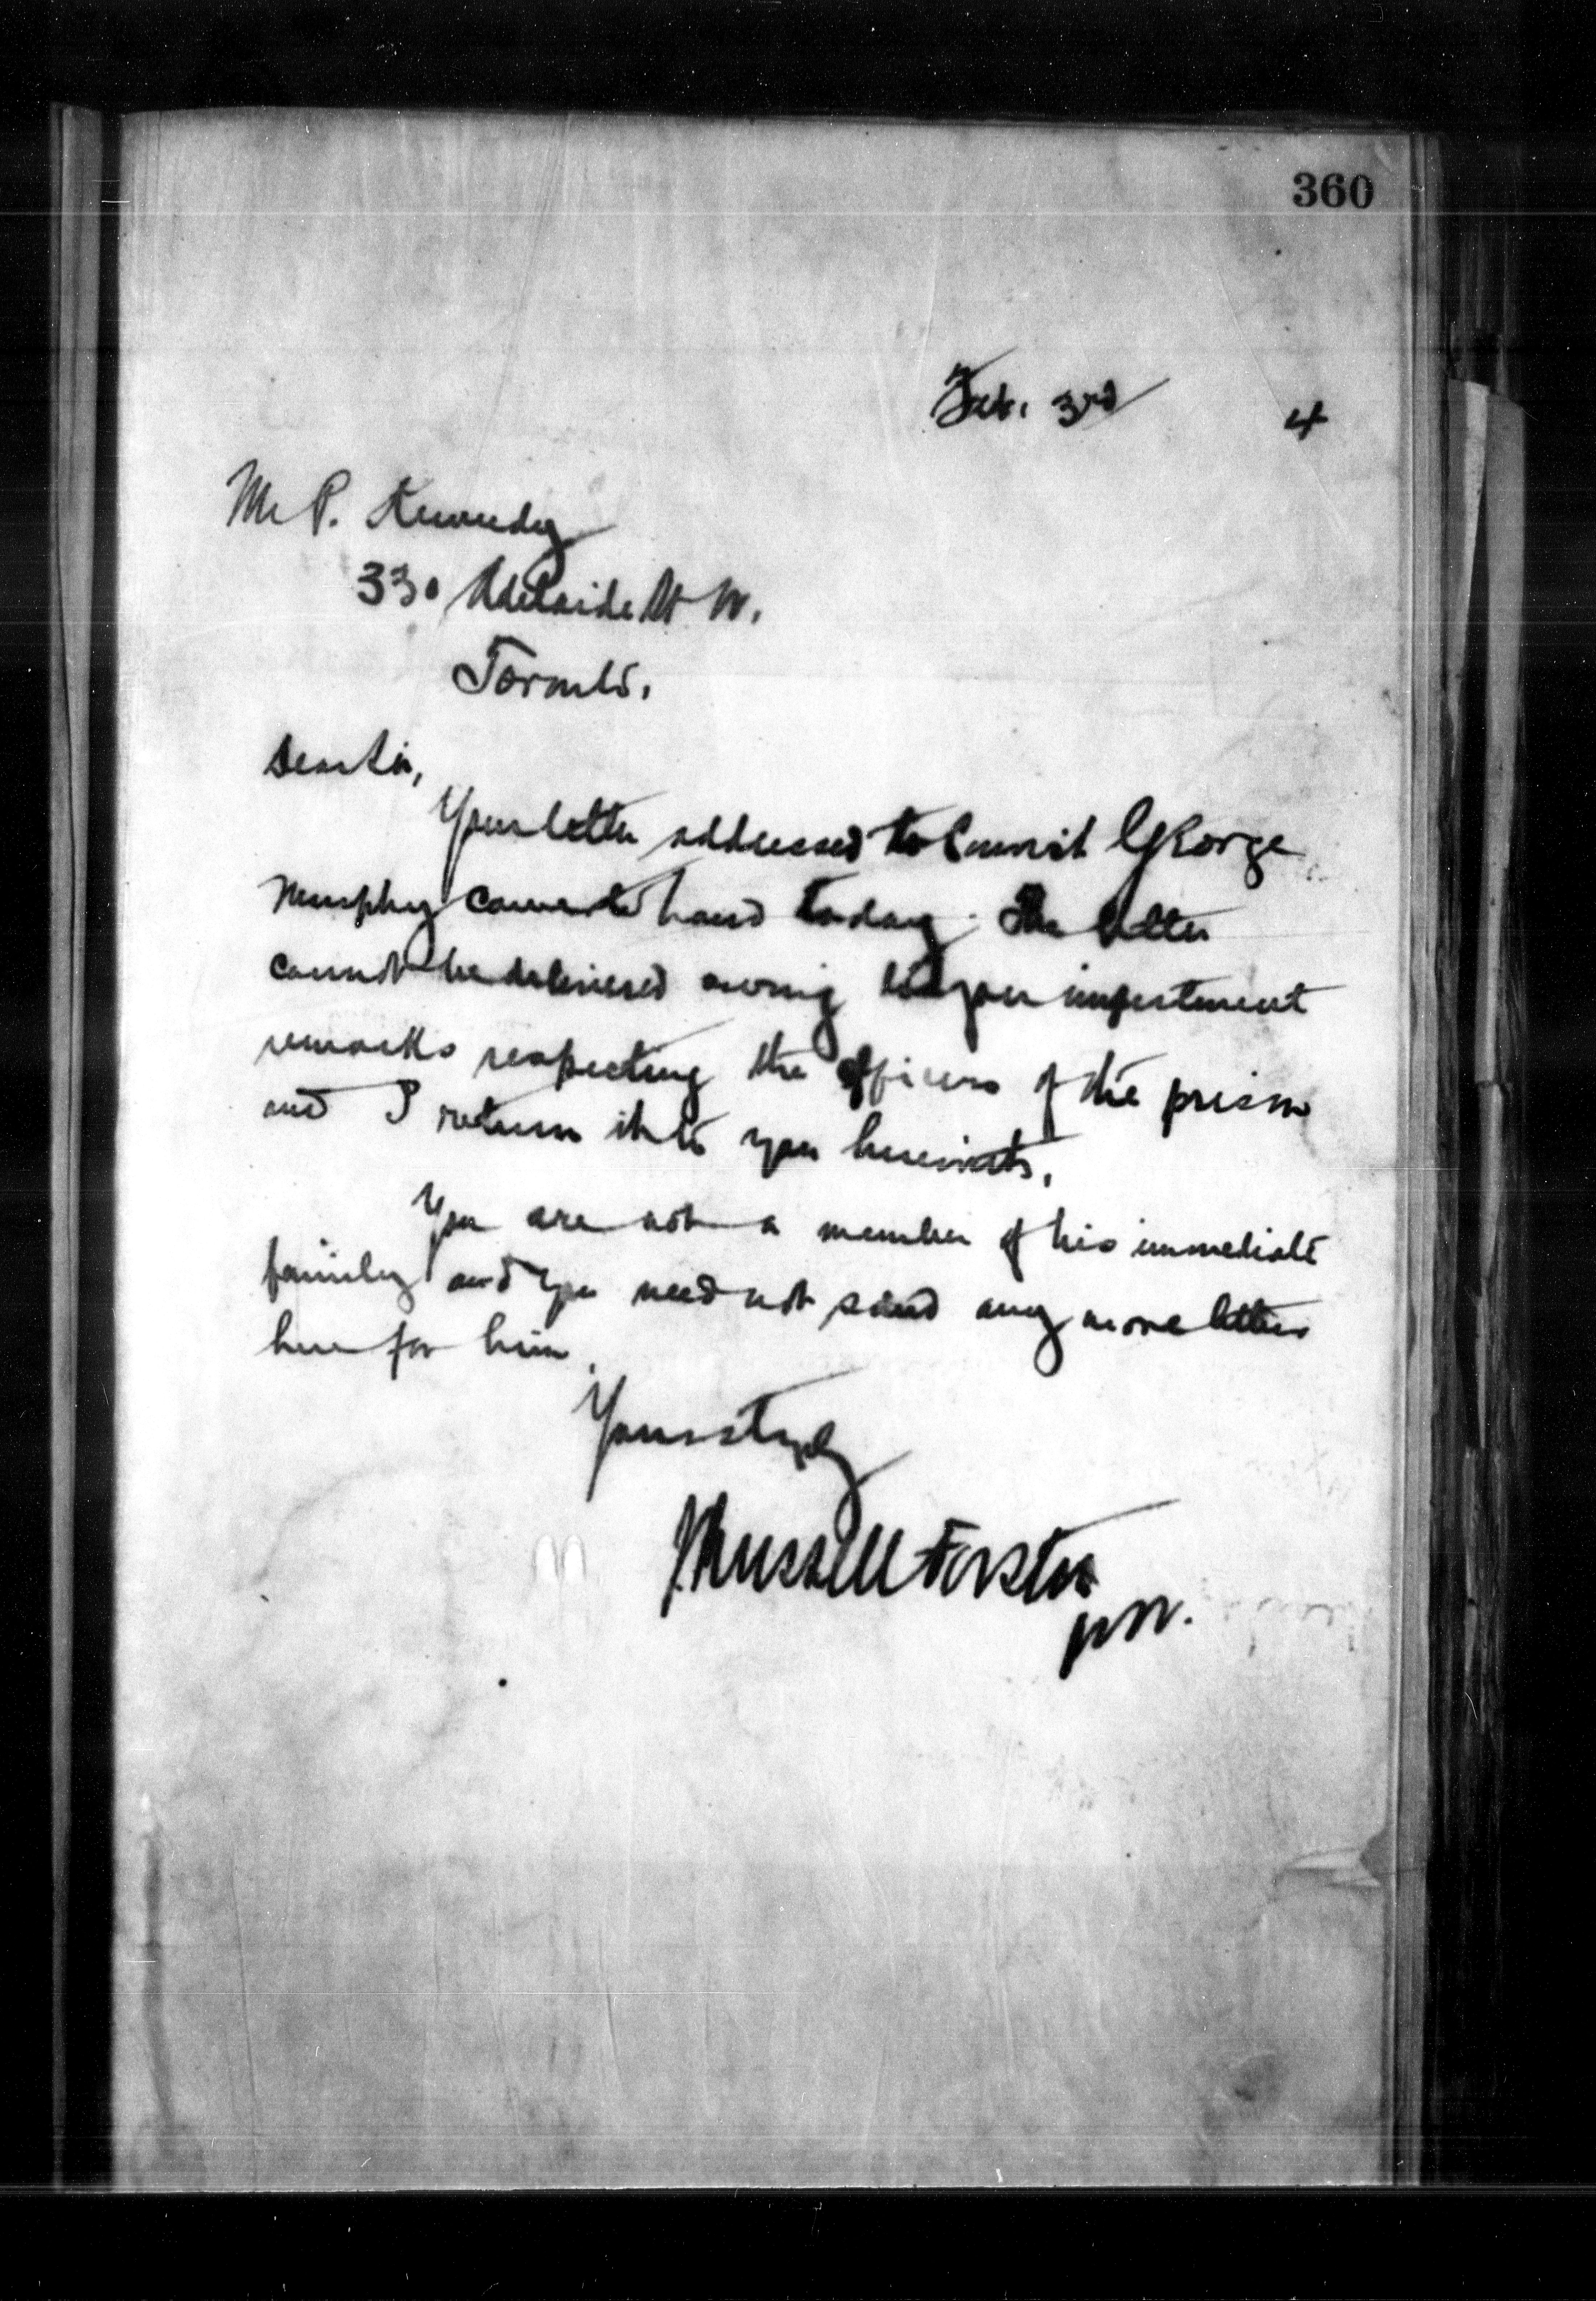 360
Feb. 3rd 4
Mr P. Kennedy
330 Adelaide St W.
Toronto.
Dear Sir,
Your letter addressed to Convict George
Murphy came to hand today. The letter
cannot be delivered owing to your impertinent
remarks respecting the officers of the prison
and I return it to you herewith.
You are not a member of his immediate
family and you need not send any more letters
here for him.
Yours truly
J. Mussell Forster